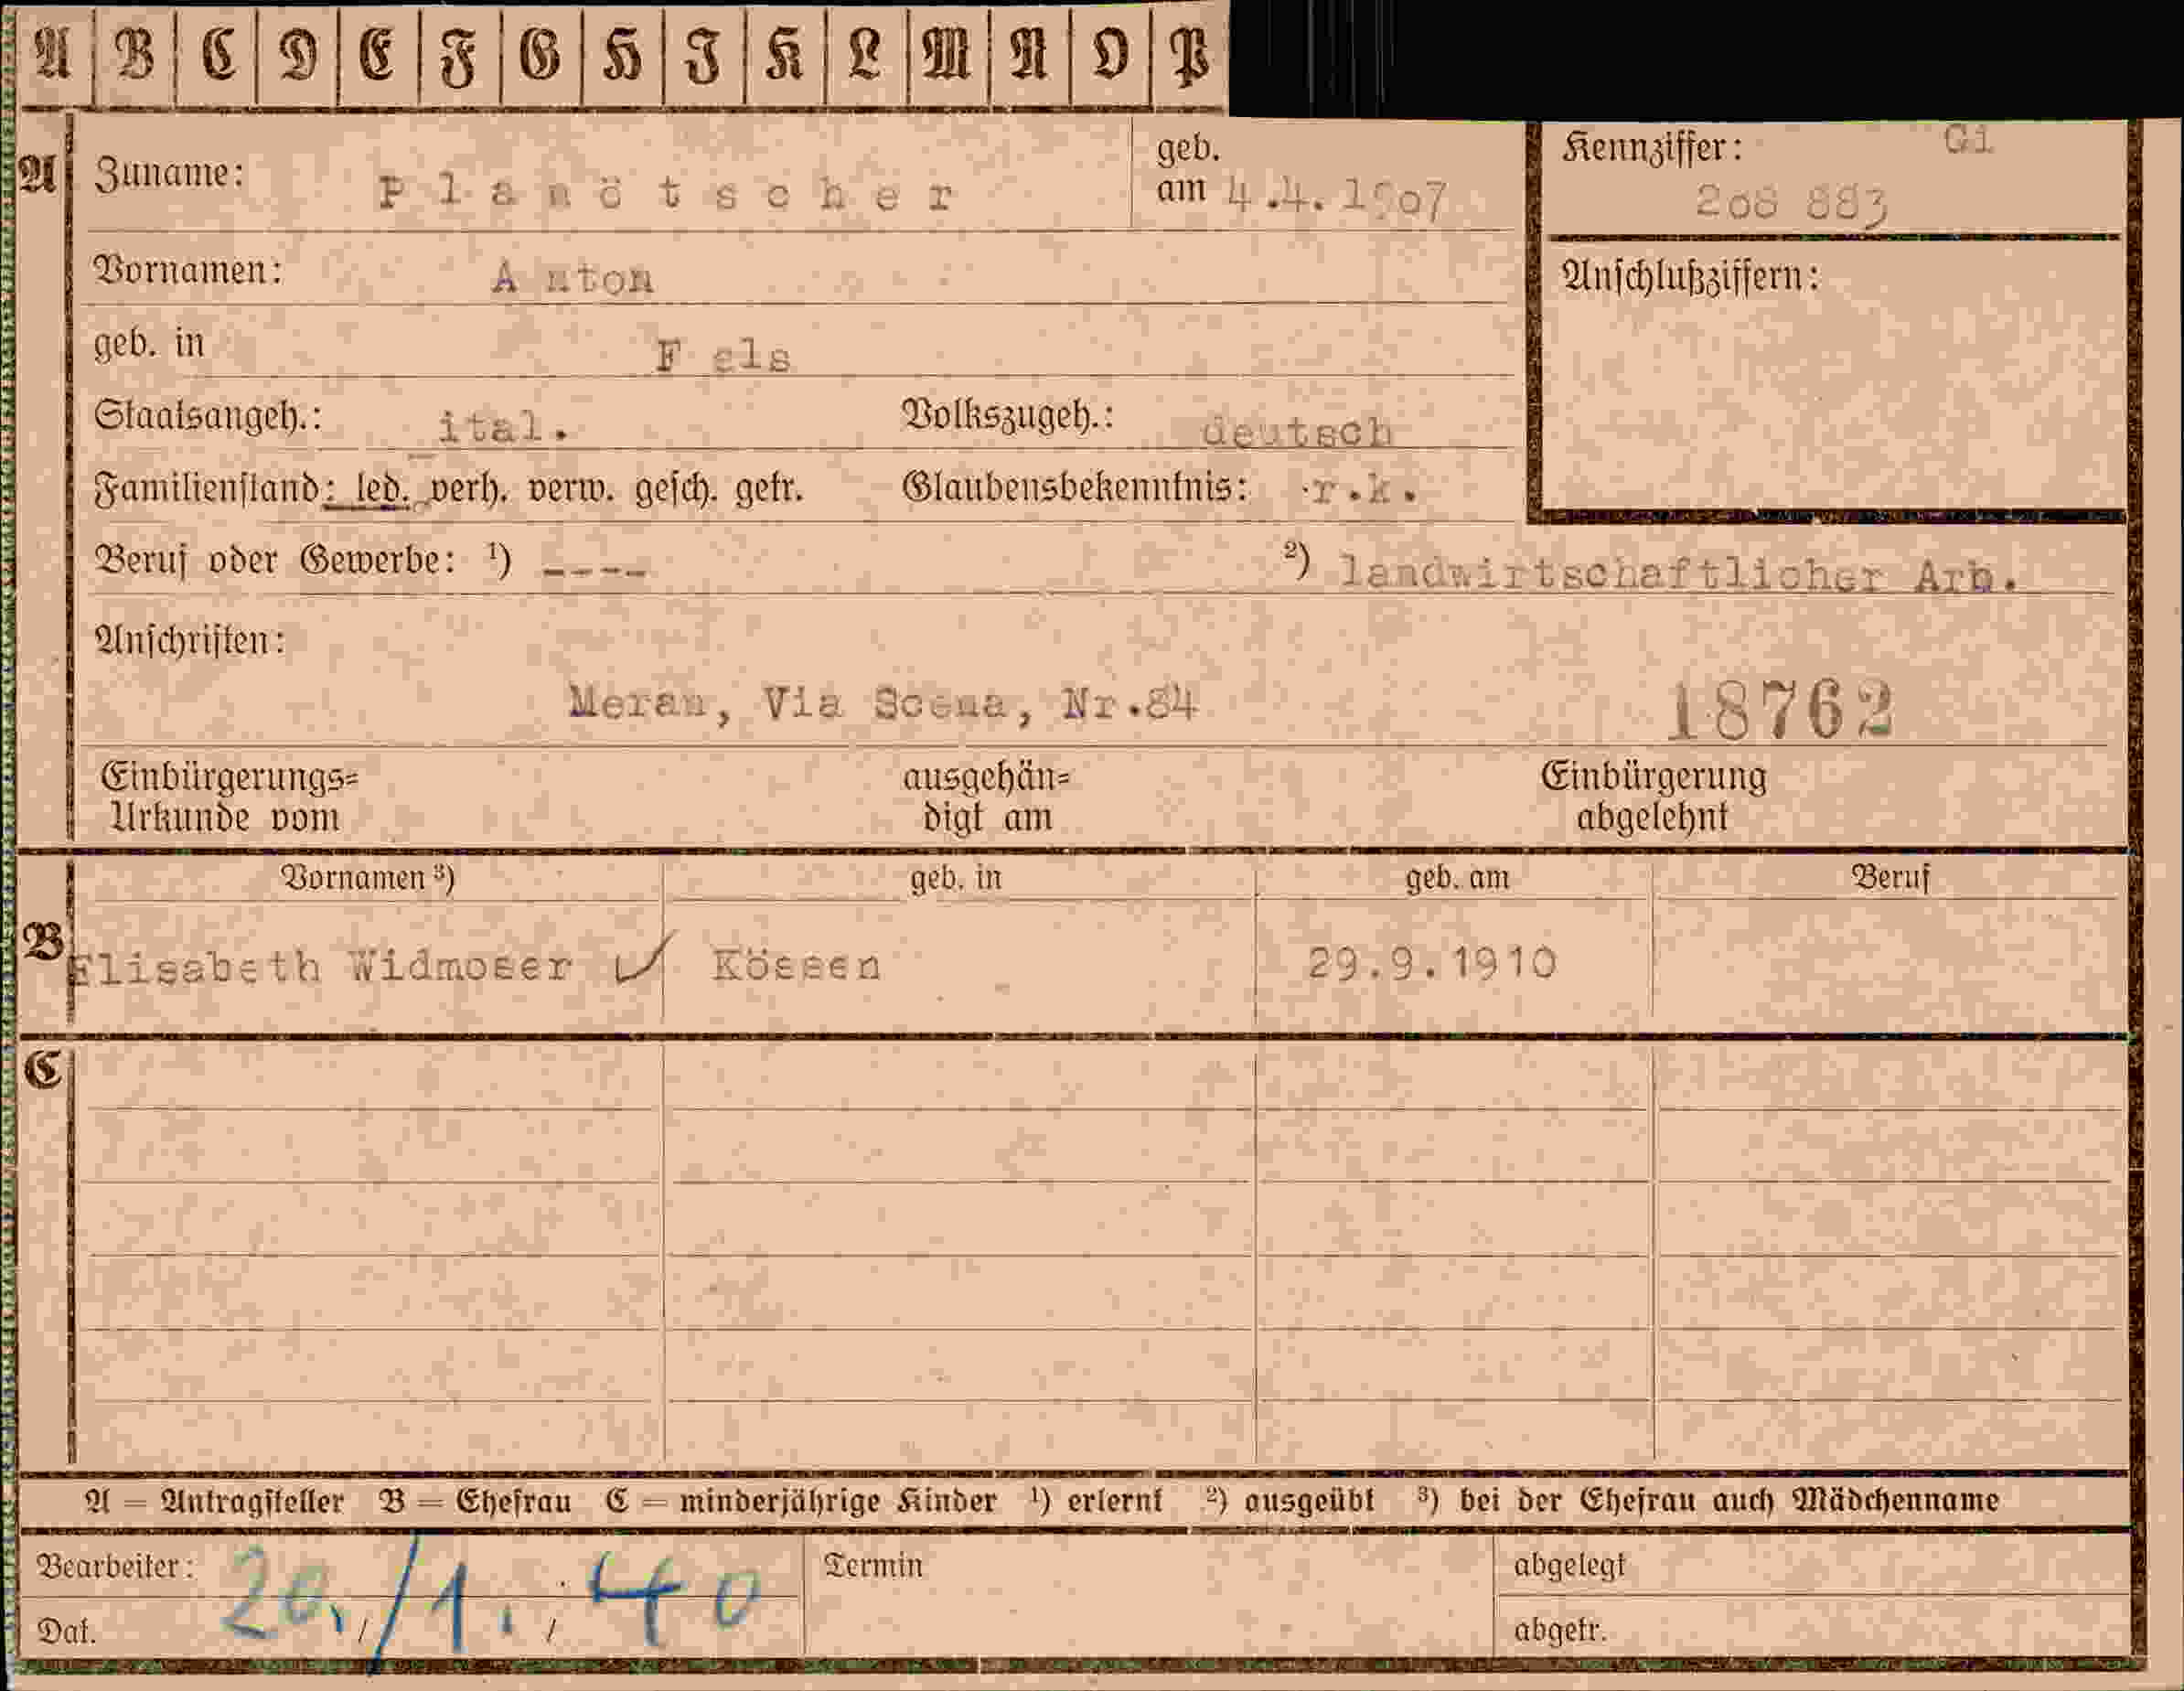 A B C D E F G H I K L M N O P
A Zuname: Planötscher geb. am 4.4.1907
Kennziffer: Gi
208 883
Vornamen: Anton
Anschlußziffern:
geb. in Fels
Staatsangeh.: ital. Volkszugeh.: deutsch
Familienstand: led. verh. verw. gesch. getr. Glaubensbekenntnis: r.k.
Beruf oder Gewerbe: ¹) ---- ²) landwirtschaftlicher Arb.
Anschriften:
Meran, Via Scena, Nr.84 18762
Einbürgerungs= ausgehän= Einbürgerung
Urkunde vom digt am abgelehnt
Vornamen ³) geb. in geb. am Beruf
B Elisabeth Widmoser ✓ Kössen 29.9.1910
C
A = Antragsteller B = Ehefrau C = minderjährige Kinder ¹) erlernt ²) ausgeübt ³) bei der Ehefrau auch Mädchenname
Bearbeiter: Termin abgelegt
Dat. /1. 40 abgetr.